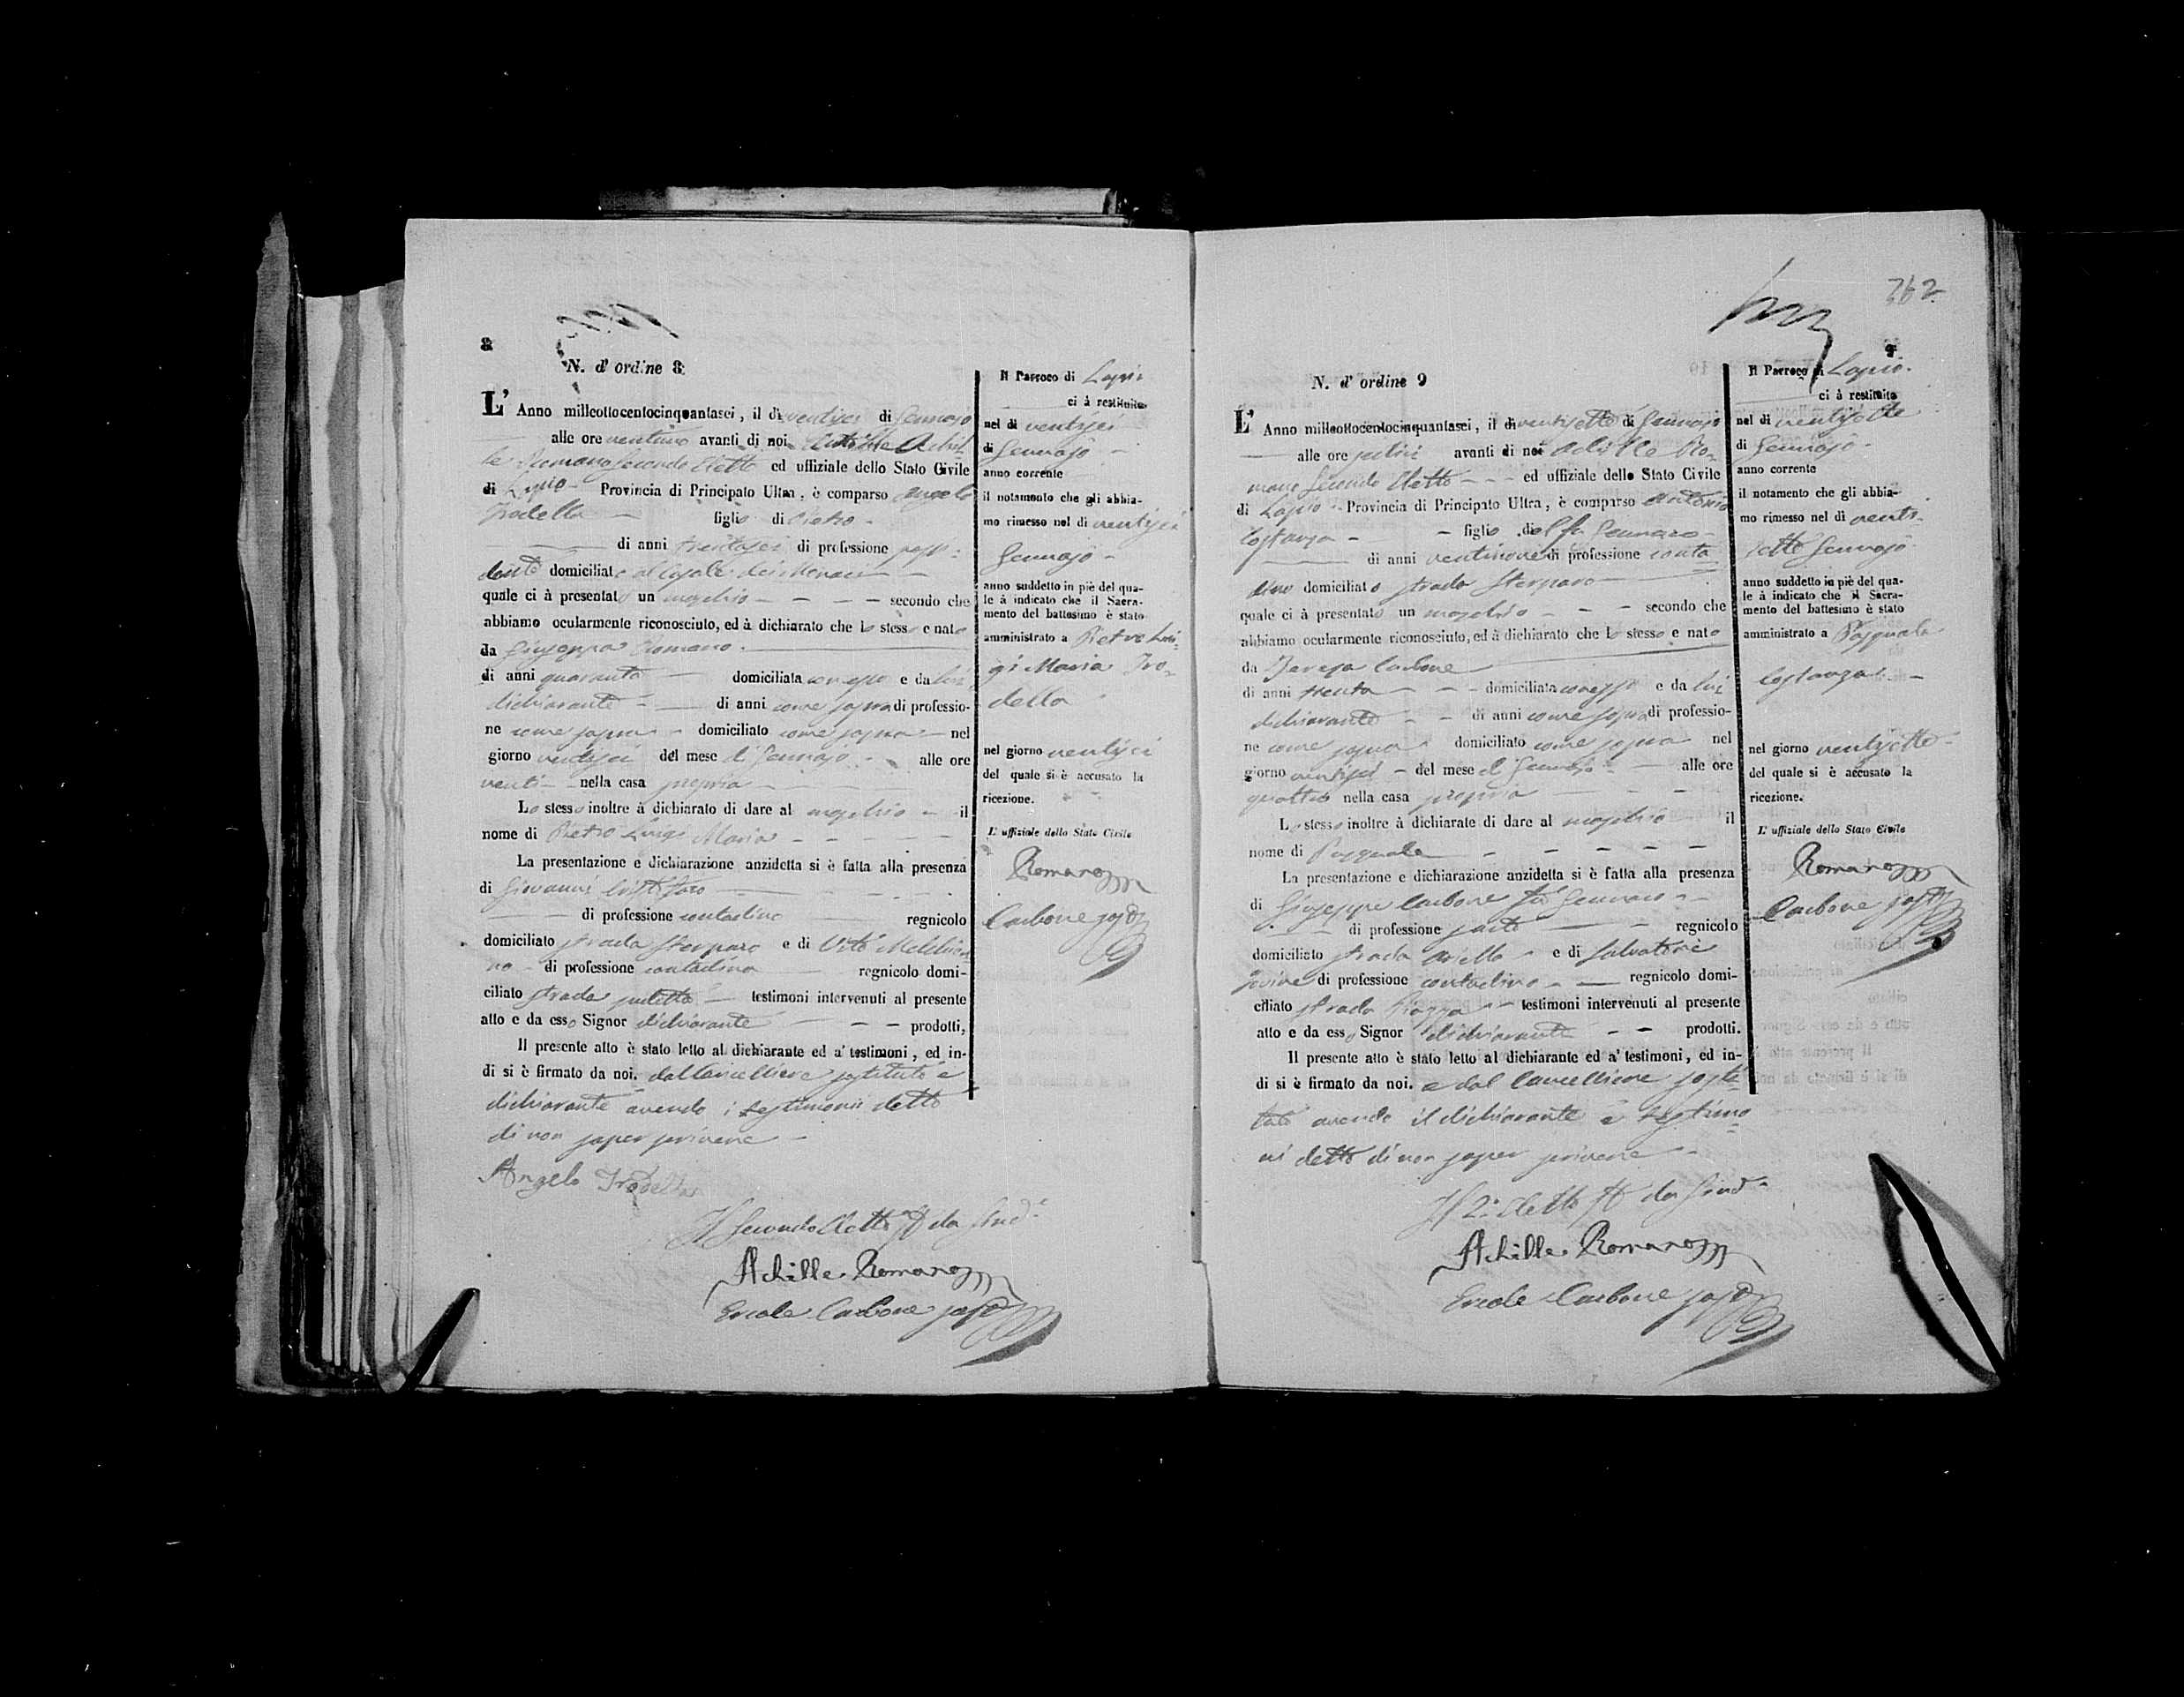 8
N. d' ordine 8
L' Anno millcottocentocinquantasei, il dì ventisei di Gennajo
alle ore ventuno avanti di noi Achil-
le Romano Secondo Eletto ed uffiziale dello Stato Civile
di Lapio Provincia di Principato Ultra, è comparso Angelo
Trodella figlio di Pietro
di anni trentasei di professione possi-
dente domiciliato al Casale dei Monaci
quale ci à presentato un maschio secondo che
abbiamo ocularmente riconosciuto, ed à dichiarato che lo stesso e nato
da Giuseppa Romano
di anni quaranta domiciliata con esso e da lui
dichiarante di anni come sopra di professio-
ne come sopra domiciliato come sopra nel
giorno ventisei del mese di Gennajo alle ore
venti nella casa propria
Lo stesso inoltre à dichiarato di dare al maschio il
nome di Pietro Luigi Maria
La presentazione e dichiarazione anzidetta si è fatta alla presenza
di Giovanni Cristofaro
di professione contadino regnicolo
domiciliato strada Sterparo e di Vito
no di professione contadino regnicolo domi-
ciliato strada testimoni intervenuti al presente
atto e da esso Signor dichiarante prodotti,
Il presente atto è stato letto al dichiarante ed a' testimoni, ed in-
di si è firmato da noi. dal Cancelliere sostituto e
dichiarante avendo i testimonii detto
di non saper scrivere
Angelo Trodella
Il Secondo Eletto ff da Sind.
Achille Romano
Ercole Carbone sost
Il Parroco di Lapio
ci à restituito
nel dì ventisei
di Gennajo
anno corrente
il notamento che gli abbia-
mo rimesso nel dì ventisei
Gennajo
anno suddetto in piè del qua-
le à indicato che il Sacra-
mento del battesimo è stato
amministrato a Pietro Lui-
gi Maria Tro-
della
nel giorno ventisei
del quale si è accusato la
ricezione.
L' uffiziale dello Stato Civile
Romano
Carbone sost
262
9
N. d' ordine 9
L' Anno millcottocentocinquantasei, il dì ventisette di Gennajo
alle ore sedici avanti di noi Achille Ro-
mano Secondo Eletto ed uffiziale dello Stato Civile
di Lapio Provincia di Principato Ultra, è comparso Antonio
Costanza figlio del fu Gennaro
di anni ventinove di professione conta-
dino domiciliato strada Sterparo
quale ci à presentato un maschio secondo che
abbiamo ocularmente riconosciuto, ed à dichiarato che lo stesso e nato
da Teresa Carbone
di anni trenta domiciliata con esso e da lui
dichiarante di anni come sopra di professio-
ne come sopra domiciliato come sopra nel
giorno ventisei del mese di Gennajo alle ore
quattro nella casa propria
Lo stesso inoltre à dichiarato di dare al maschio il
nome di Pasquale
La presentazione e dichiarazione anzidetta si è fatta alla presenza
di Giuseppe Carbone fu Gennaro
di professione sarto regnicolo
domiciliato strada Ariella e di Salvatore
Iovine di professione contadino regnicolo domi-
ciliato strada Piazza testimoni intervenuti al presente
atto e da esso Signor dichiarante prodotti.
Il presente atto è stato letto al dichiarante ed a' testimoni, ed in-
di si è firmato da noi. e dal Cancelliere sosti-
tuto avendo il dichiarante e testimo-
ni detto di non saper scrivere
Il 2.° Eletto ff da Sind.
Achille Romano
Ercole Carbone sost
Il Parroco di Lapio
ci à restituito
nel dì ventisette
di Gennajo
anno corrente
il notamento che gli abbia-
mo rimesso nel dì venti-
sette Gennajo
anno suddetto in piè del qua-
le à indicato che il Sacra-
mento del battesimo è stato
amministrato a Pasquale
Costanza
nel giorno ventisette
del quale si è accusato la
ricezione.
L' uffiziale dello Stato Civile
Romano
Carbone sost